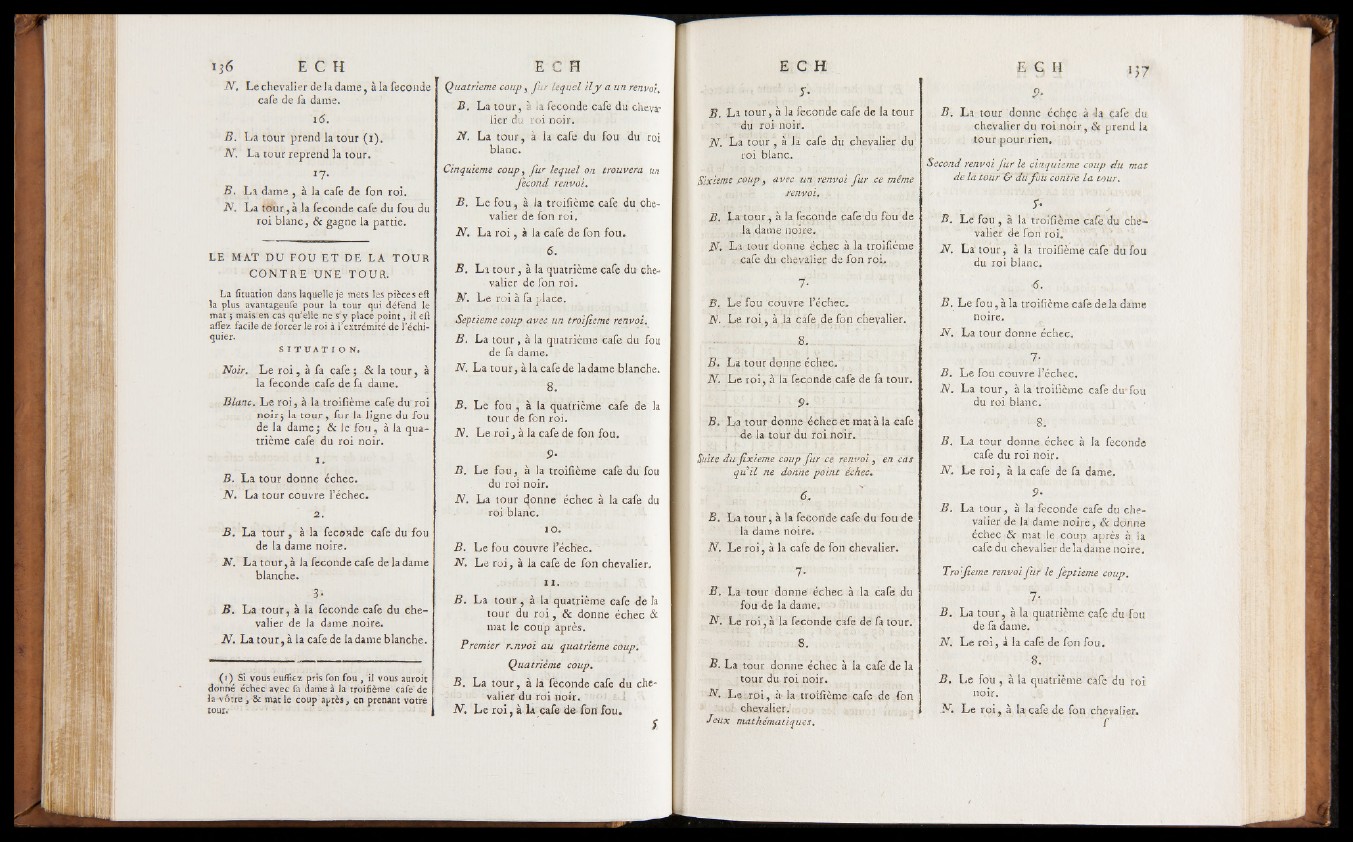 136 E C H
N. Le chevalier de la dame, à la ſeconde
caſe de ſa dame.
16.
B. La tour prend la tour (1).
N. La tour reprend la tour.
17.
B. La dame, à la caſe de ſon roi.
N. La tour, à la ſeconde caſe du fou du
roi blanc, & gagne la partie.
LE MAT DU FOU ET DE LA TOUR
CONTRE UNE TOUR.
La ſituation dans laquelle je mets les pièces eſt
la plus avantageuſe pour la tour qui défend le
mat ; mais en cas qu'elle ne s'y place point, il eſt
aſſez facile de forcer le roi à l'extrémité de l'échi-
quier.
SITUATION.
Noir. Le roi, à ſa caſe ; & la tour, à
la ſeconde caſe de ſa dame.
Blanc. Le roi, à la troiſième caſe du roi
noir ; la tour, ſur la ligne du fou
de la dame ; & le fou, à la qua-
trième caſe du roi noir.
1.
B. La tour donne échec.
N. La tour couvre l'échec.
2.
B. La tour, à la ſeconde caſe du fou
de la dame noire.
N. La tour, à la ſeconde caſe de la dame
blanche.
3.
B. La tour, à la ſeconde caſe du che-
valier de la dame noire.
N. La tour, à la caſe de la dame blanche.
(1) Si vous euſſiez pris ſon fou, il vous auroit
donné échec avec ſa dame à la troiſième caſe de
la vôtre, & mat le coup après, en prenant votre
tour.
E C H
Quatrieme coup, ſur lequel il y a un renvoi.
B. La tour, à la ſeconde caſe du cheva-
lier du roi noir.
N. La tour, à la caſe du fou du roi
blanc.
Cinquieme coup, ſur lequel on trouvera un
ſecond renvoi.
B. Le fou, à la troiſième caſe du che-
valier de ſon roi.
N. La roi, à la caſe de ſon fou.
6.
B. La tour, à la quatrième caſe du che-
valier de ſon roi.
N. Le roi à ſa place.
Septieme coup avec un troiſieme renvoi.
B. La tour, à la quatrième caſe du fou
de ſa dame.
N. La tour, à la caſe de la dame blanche.
8.
B. Le fou, à la quatrième caſe de la
tour de ſon roi.
N. Le roi, à la caſe de ſon fou.
9.
B. Le fou, à la troiſième caſe du fou
du roi noir.
N. La tour donne échec à la caſe du
roi blanc.
10.
B. Le fou couvre l'échec.
N. Le roi, à la caſe de ſon chevalier.
11.
B. La tour, à la quatrième caſe de la
tour du roi, & donne échec &
mat le coup après.
Premier renvoi au quatrieme coup.
Quatrième coup.
B. La tour, à la ſeconde caſe du che-
valier du roi noir.
N. Le roi, à la caſe de ſon fou.
E C H
5.
B. La tour, à la ſeconde caſe de la tour
du roi noir.
N. La tour, à la caſe du chevalier du
roi blanc.
Sixieme coup, avec un renvoi ſur ce même
renvoi.
B. La tour, à la ſeconde caſe du fou de
la dame noire.
N. La tour donne échec à la troiſième
caſe du chevalier de ſon roi.
7.
B. Le fou couvre l'échec.
N. Le roi, à la caſe de ſon chevalier.
8.
B. La tour donne échec.
N. Le roi, à la ſeconde caſe de ſa tour.
9.
B. La tour donne échec et mat à la caſe
de la tour du roi noir.
Suite du ſixieme coup ſur ce renvoi, en cas
qu'il ne donne point échec.
6.
B. La tour, à la ſeconde caſe du fou de
la dame noire.
N. Le roi, à la caſe de ſon chevalier.
7.
B. La tour donne échec à la caſe du
fou de la dame.
N. Le roi, à la ſeconde caſe de ſa tour.
8.
B. La tour donne échec à la caſe de la
tour du roi noir.
N. Le roi, à la troiſième caſe de ſon
chevalier.
Jeux mathématiques.
E C H 137
9.
B. La tour donne échec à la caſe du
chevalier du roi noir, & prend la
tour pour rien.
Second renvoi ſur le cinquieme coup du mat
de la tour & du fou contre la tour.
5.
B. Le fou, à la troiſième caſe du che-
valier de ſon roi.
N. La tour, à la troiſième caſe du fou
du roi blanc.
6.
B. Le fou, à la troiſième caſe de la dame
noire.
N. La tour donne échec.
7.
B. Le fou couvre l'échec.
N. La tour, à la troiſième caſe du fou
du roi blanc.
8.
B. La tour donne échec à la ſeconde
caſe du roi noir.
N. Le roi, à la caſe de ſa dame.
9.
B. La tour, à la ſeconde caſe du che-
valier de la dame noire, & donne
échec & mat le coup après à la
caſe du chevalier de la dame noire.
Troiſieme renvoi ſur le ſeptieme coup.
7.
B. La tour, à la quatrième caſe du fou
de ſa dame.
N. Le roi, à la caſe de ſon fou.
8.
B. Le fou, à la quatrième caſe du roi
noir.
N. Le roi, à la caſe de ſon chevalier.